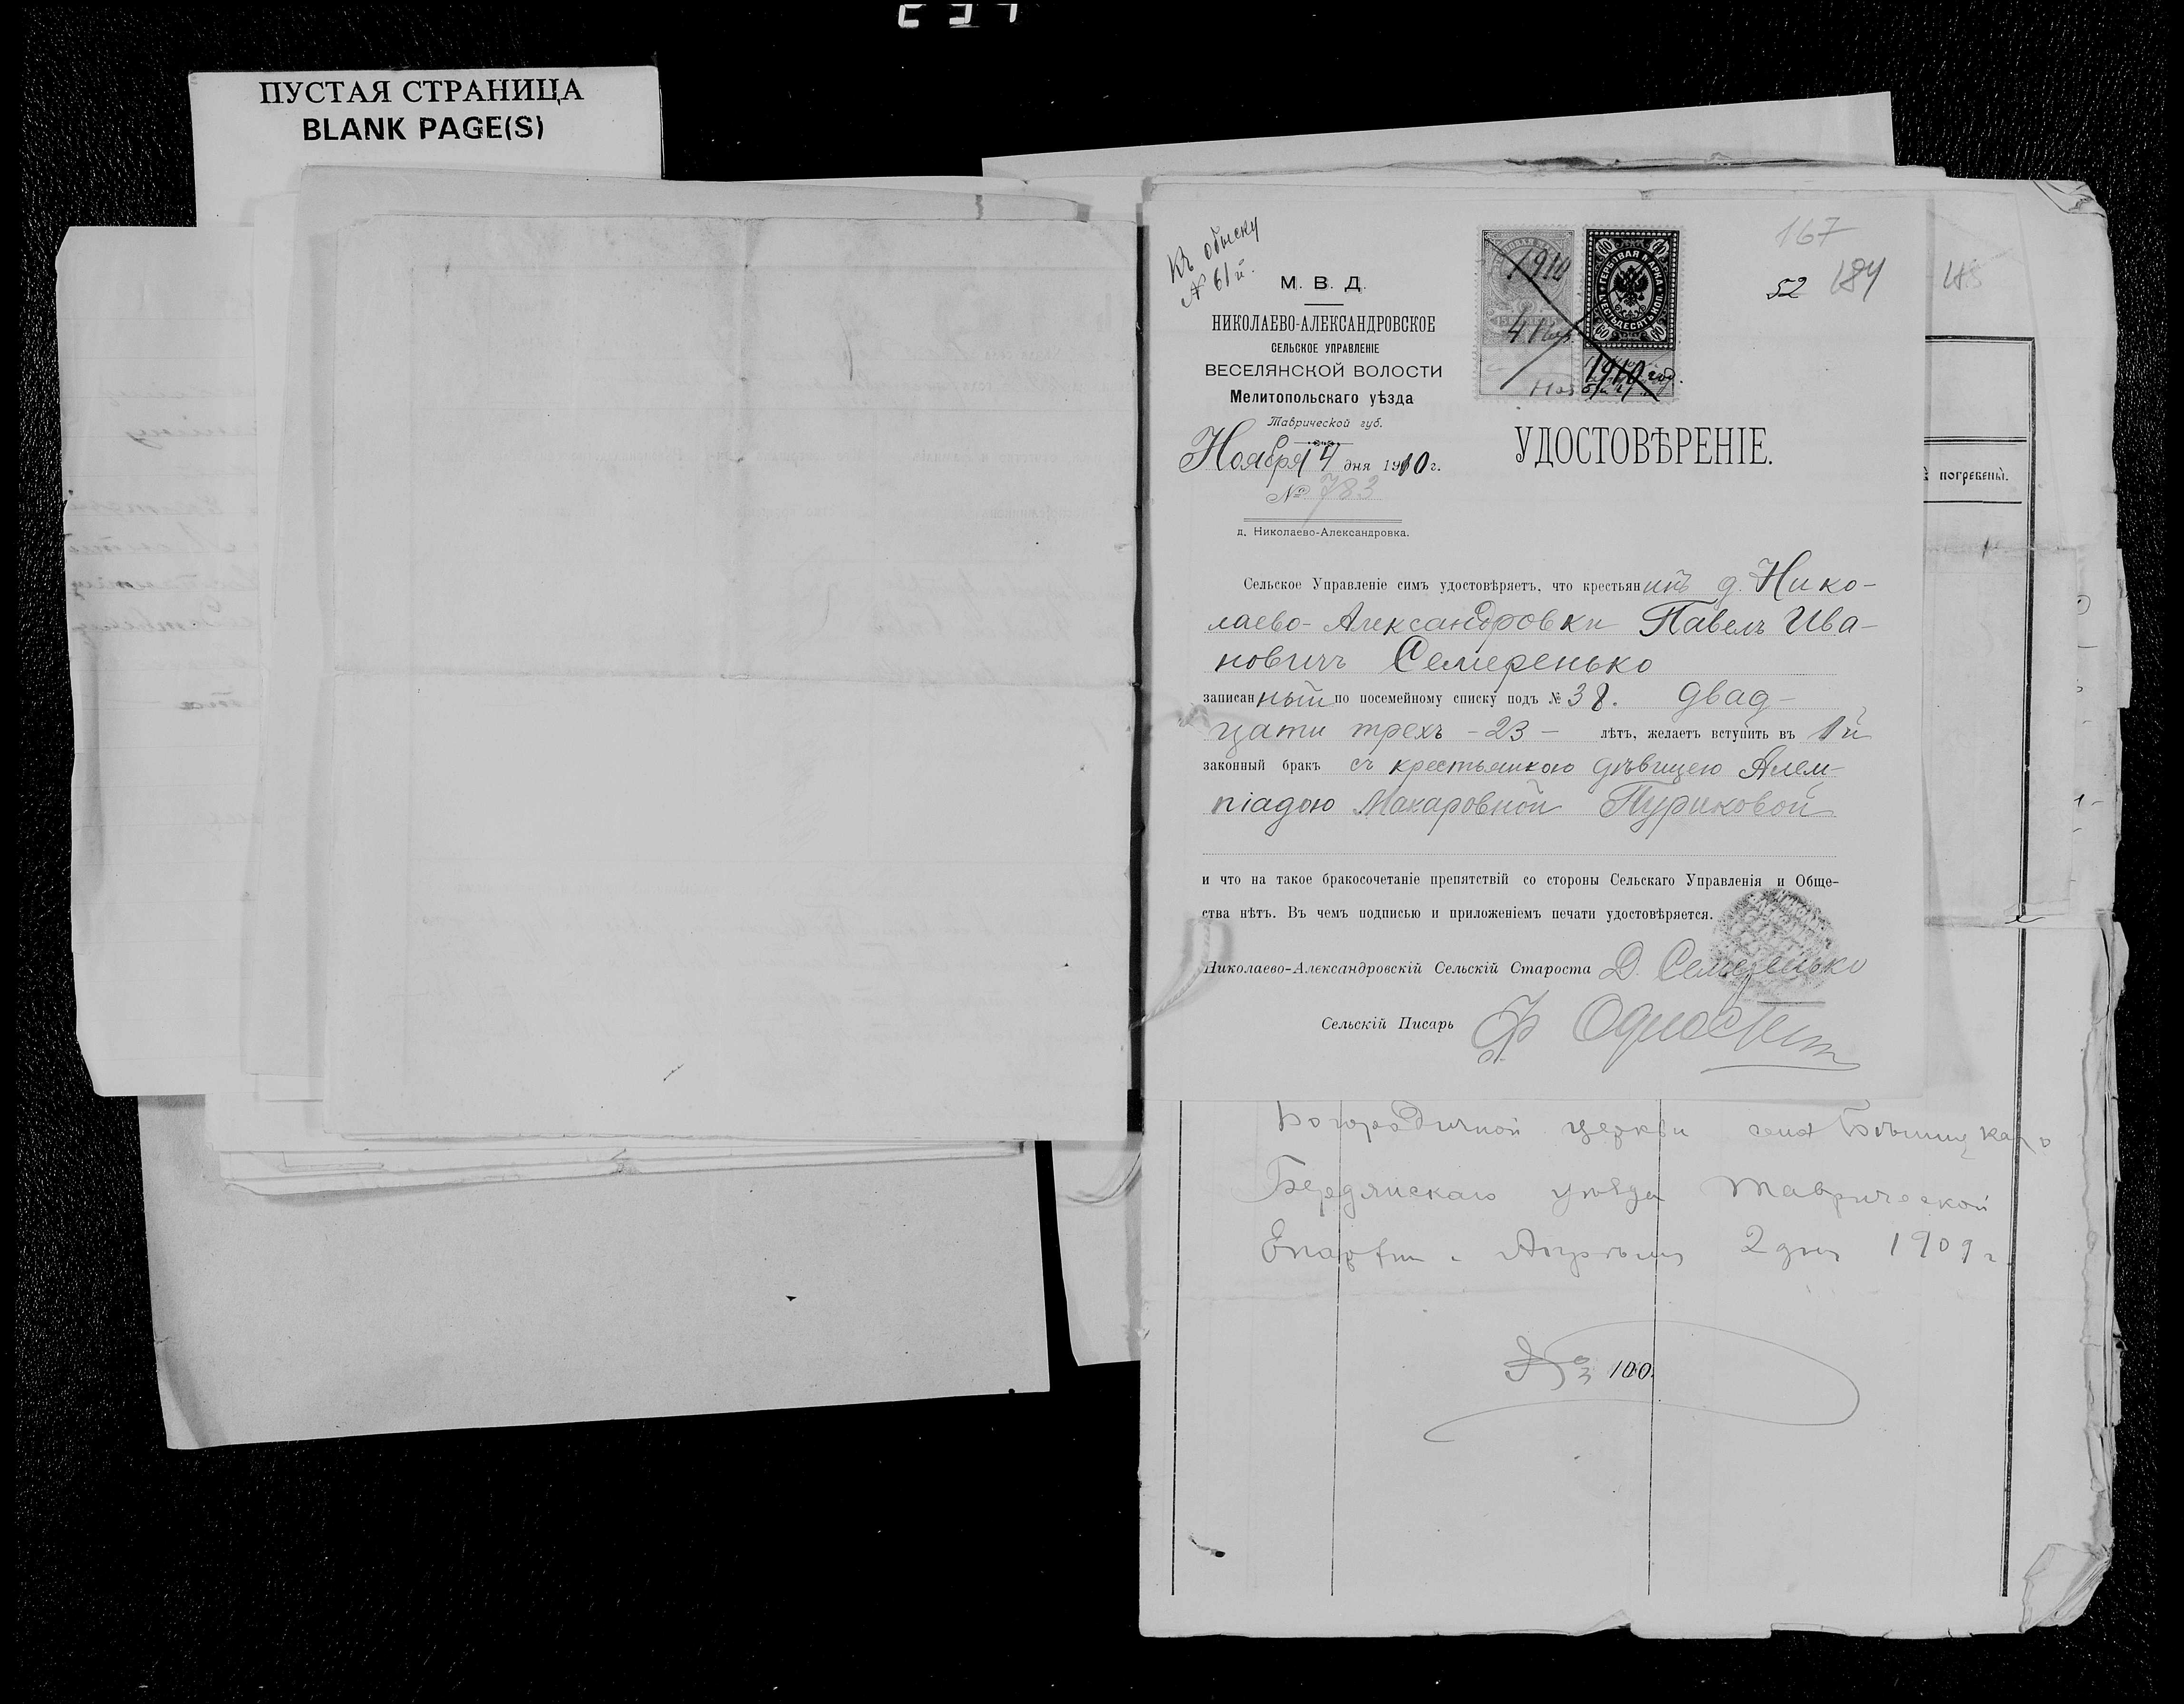 ПУСТАЯ СТРАНИЦА
BLANK PAGE(S)
Къ обыску
№ 61й.
167
52 184
М. В. Д.
НИКОЛАЕВО-АЛЕКСАНДРОВСКОЕ
СЕЛЬСКОЕ УПРАВЛЕНІЕ
ВЕСЕЛЯНСКОЙ ВОЛОСТИ
Мелитопольскаго уѣзда
Таврической губ.
Ноября 4 дня 1910 г.
№ 783
д. Николаево-Александровка.
1910
ГЕРБОВАЯ МАРКА
60 60
60 60
1910 год.
УДОСТОВѢРЕНІЕ.
погребены.
Сельское Управленіе симъ удостовѣряетъ, что крестьянинъ д. Нико-
лаево-Александровки Павелъ Ива-
новичъ Семеренько
записанный по посемейному списку подъ № 38. двад-
цати трехъ -23- лѣтъ, желаетъ вступить въ 1й
законный бракъ съ крестьянкою дѣвицею Алем-
піадою Макаровной Пуриковой
и что на такое бракосочетаніе препятствій со стороны Сельскаго Управленія и Обще-
ства нѣтъ. Въ чемъ подписью и приложеніемъ печати удостовѣряется.
Николаево-Александровскій Сельскій Староста Д. Семеренько
Сельскій Писарь Ф.
Богородичной церкви села
Бердянскаго уѣзда Таврической
Епархіи 2 дня 1909 г.
№ 100.